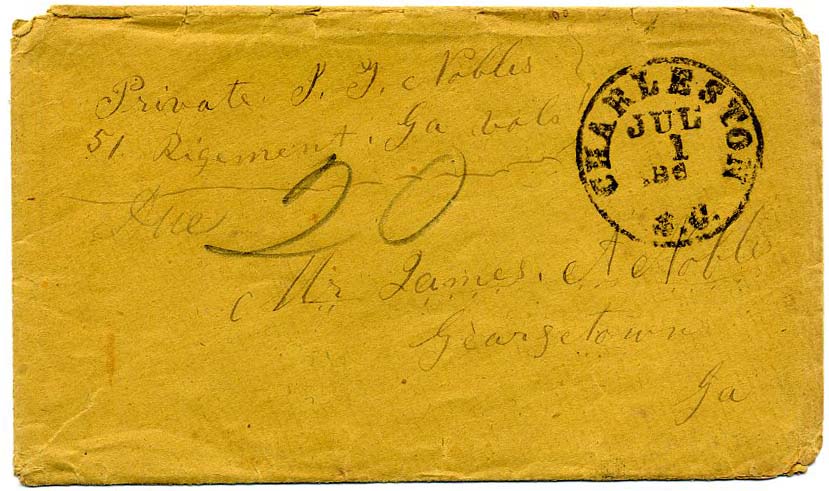 Private. J. T. Nobles
51 Rigement. Ga vols
Due 20
CHARLESTON
JUL
1
S.C.
Mr James. A Noble
Georgetown
Ga